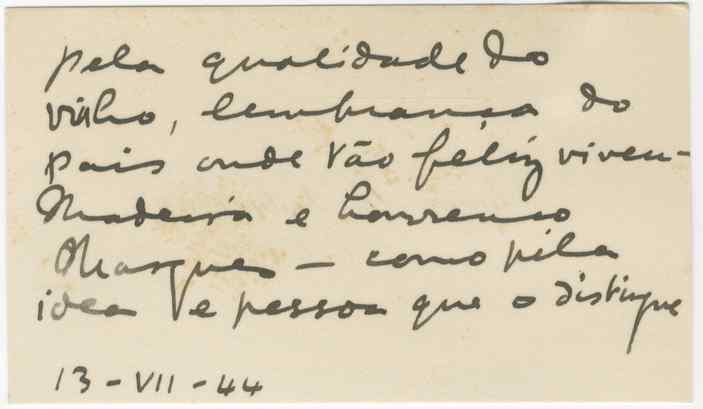 pela qualidade do
vinho, lembrança do
pais onde tão feliz viveu –
Madeira e Lourenço
Marques – como pela
idea e pessoa que o distingue
13 - VII - 44